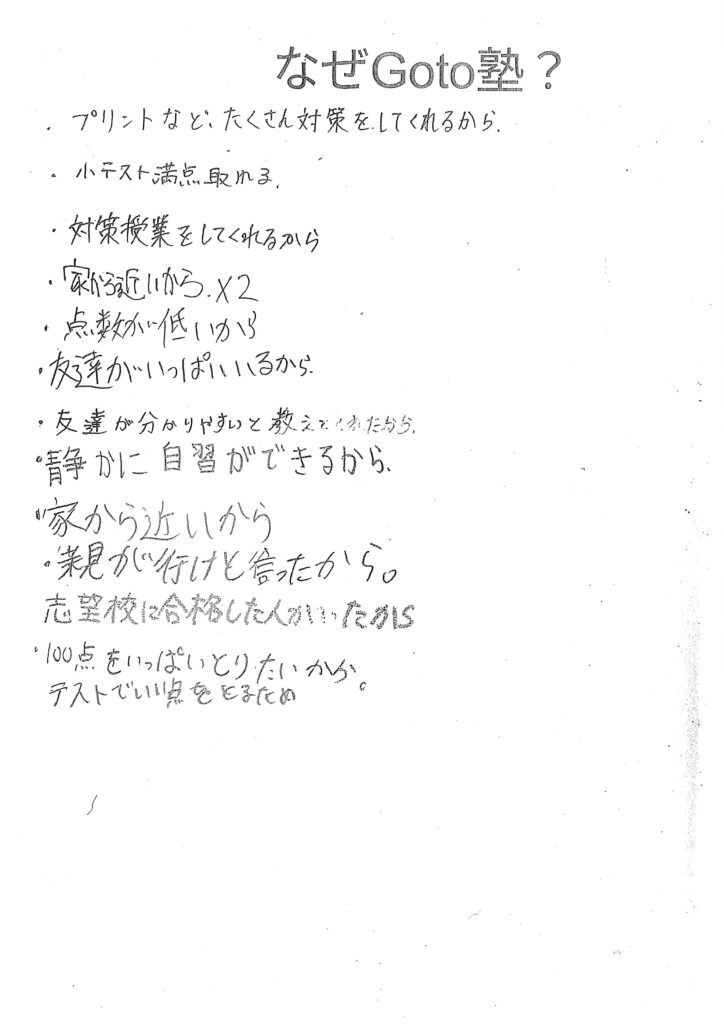 なぜGoto塾？
・プリントなど、たくさん対策をしてくれるから.
・小テスト満点取れる.
・対策授業をしてくれるから
・家から近いから.×2
・点数が低いから
・友達がいっぱいいるから.
・友達が分かりやすいと教えてくれたから.
・静かに自習ができるから.
・家から近いから
・親が行けと言ったから。
志望校に合格した人がいったから
・100点をいっぱいとりたいから。
テストでいい点をとるため